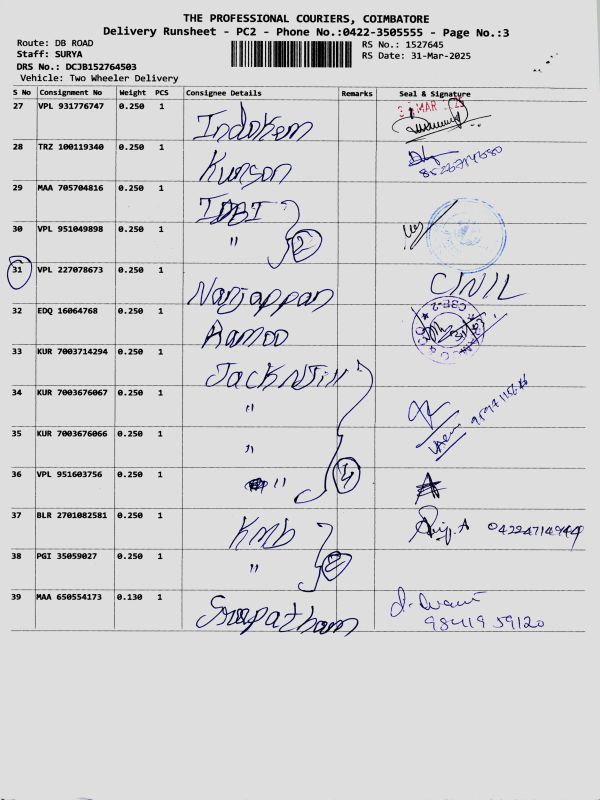 THE PROFESSIONAL COURIERS, COIMBATORE
Delivery Runsheet - PC2 - Phone No.:0422-3505555 - Page No.:3
Route: DB ROAD
RS No.: 1527645
Staff: SURYA
RS Date: 31-Mar-2025
DRS No.: DCJB152764503
Vehicle: Two Wheeler Delivery
S No Consignment No Weight PCS Consignee Details Remarks Seal & Signature
27 VPL 931776747 0.250 1 Indokem MAR
28 TRZ 100119340 0.250 1 Kunson
29 MAA 705704816 0.250 1 IDBI
30 VPL 951049898 0.250 1 " 2
31 VPL 227078673 0.250 1 Nanjappan CNIL
32 EDQ 16064768 0.250 1 Ramoo CBE-2
33 KUR 7003714294 0.250 1 Jack N Jill
34 KUR 7003676067 0.250 1 "
35 KUR 7003676066 0.250 1 "
36 VPL 951603756 0.250 1 " 4
37 BLR 2701082581 0.250 1 Kmb
38 PGI 35059027 0.250 1 " 2
39 MAA 650554173 0.130 1
98419 59120